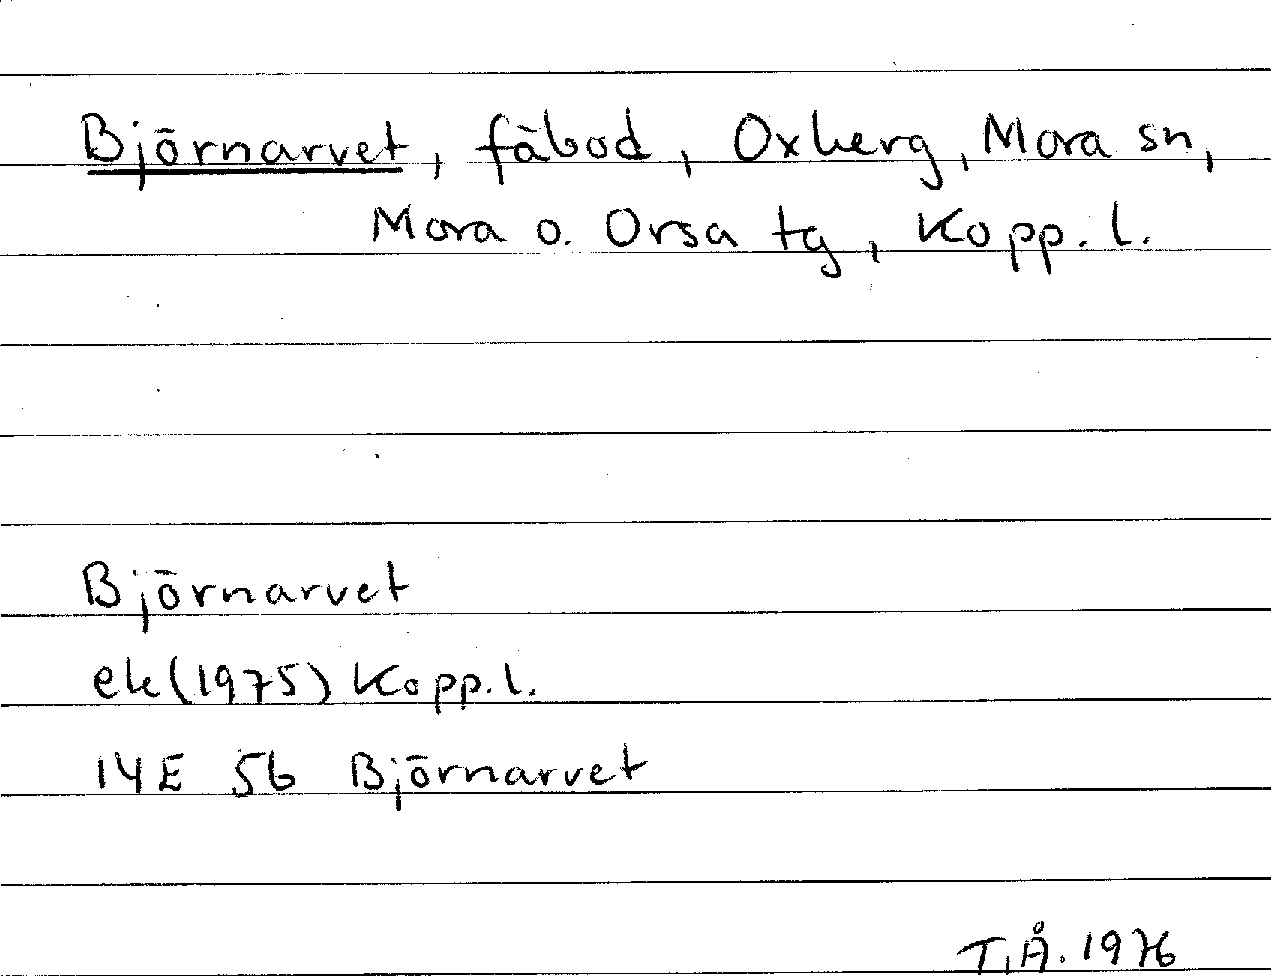 Björnarvet, fäbod, Oxberg, Mora sn,
Mora o. Orsa tg, Kopp. l.
Björnarvet
ek (1975) Kopp. l.
14E 5b Björnarvet
T.Å. 1976